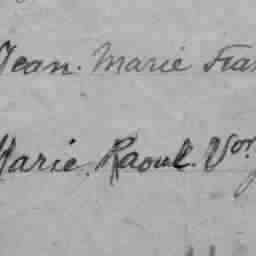 Jean. Marie Fran
Marie. Raoul. Vor